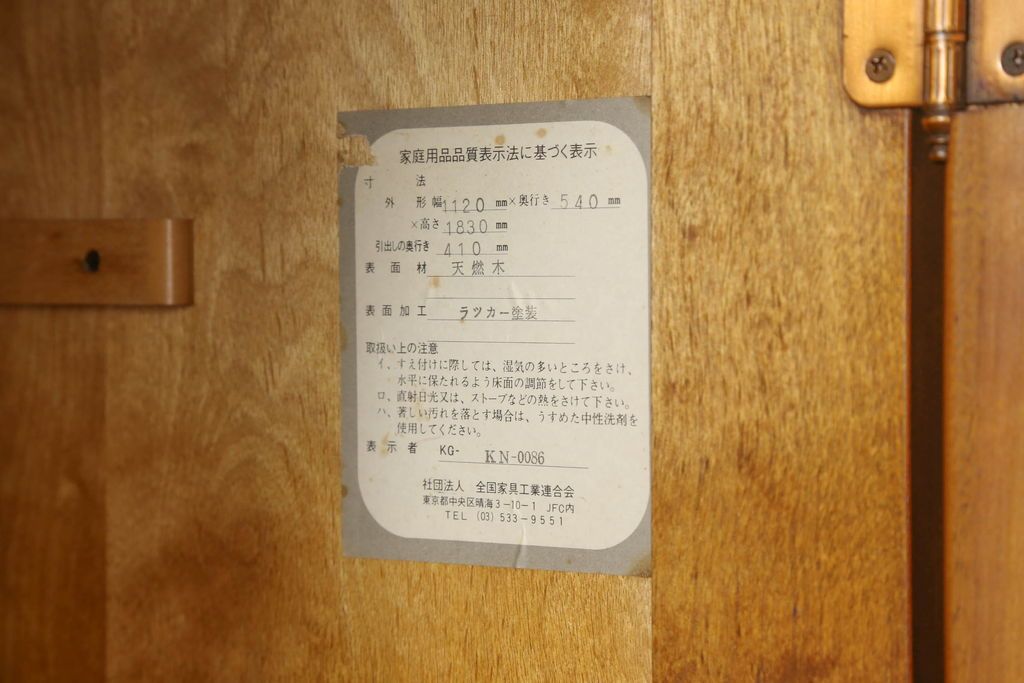 家庭用品品質表示法に基づく表示
寸法
外形 幅1120mm×奥行き540mm
×高さ1830mm
引出しの奥行き410mm
表面材 天燃木
表面加工 ラツカー塗装
取扱い上の注意
イ、すえ付けに際しては、湿気の多いところをさけ、
水平に保たれるよう床面の調節をして下さい。
ロ、直射日光又は、ストーブなどの熱をさけて下さい。
ハ、著しい汚れを落とす場合は、うすめた中性洗剤を
使用してください。
表示者 KG- KN-0086
社団法人 全国家具工業連合会
東京都中央区晴海3-10-1 JFC内
TEL (03) 533-9551